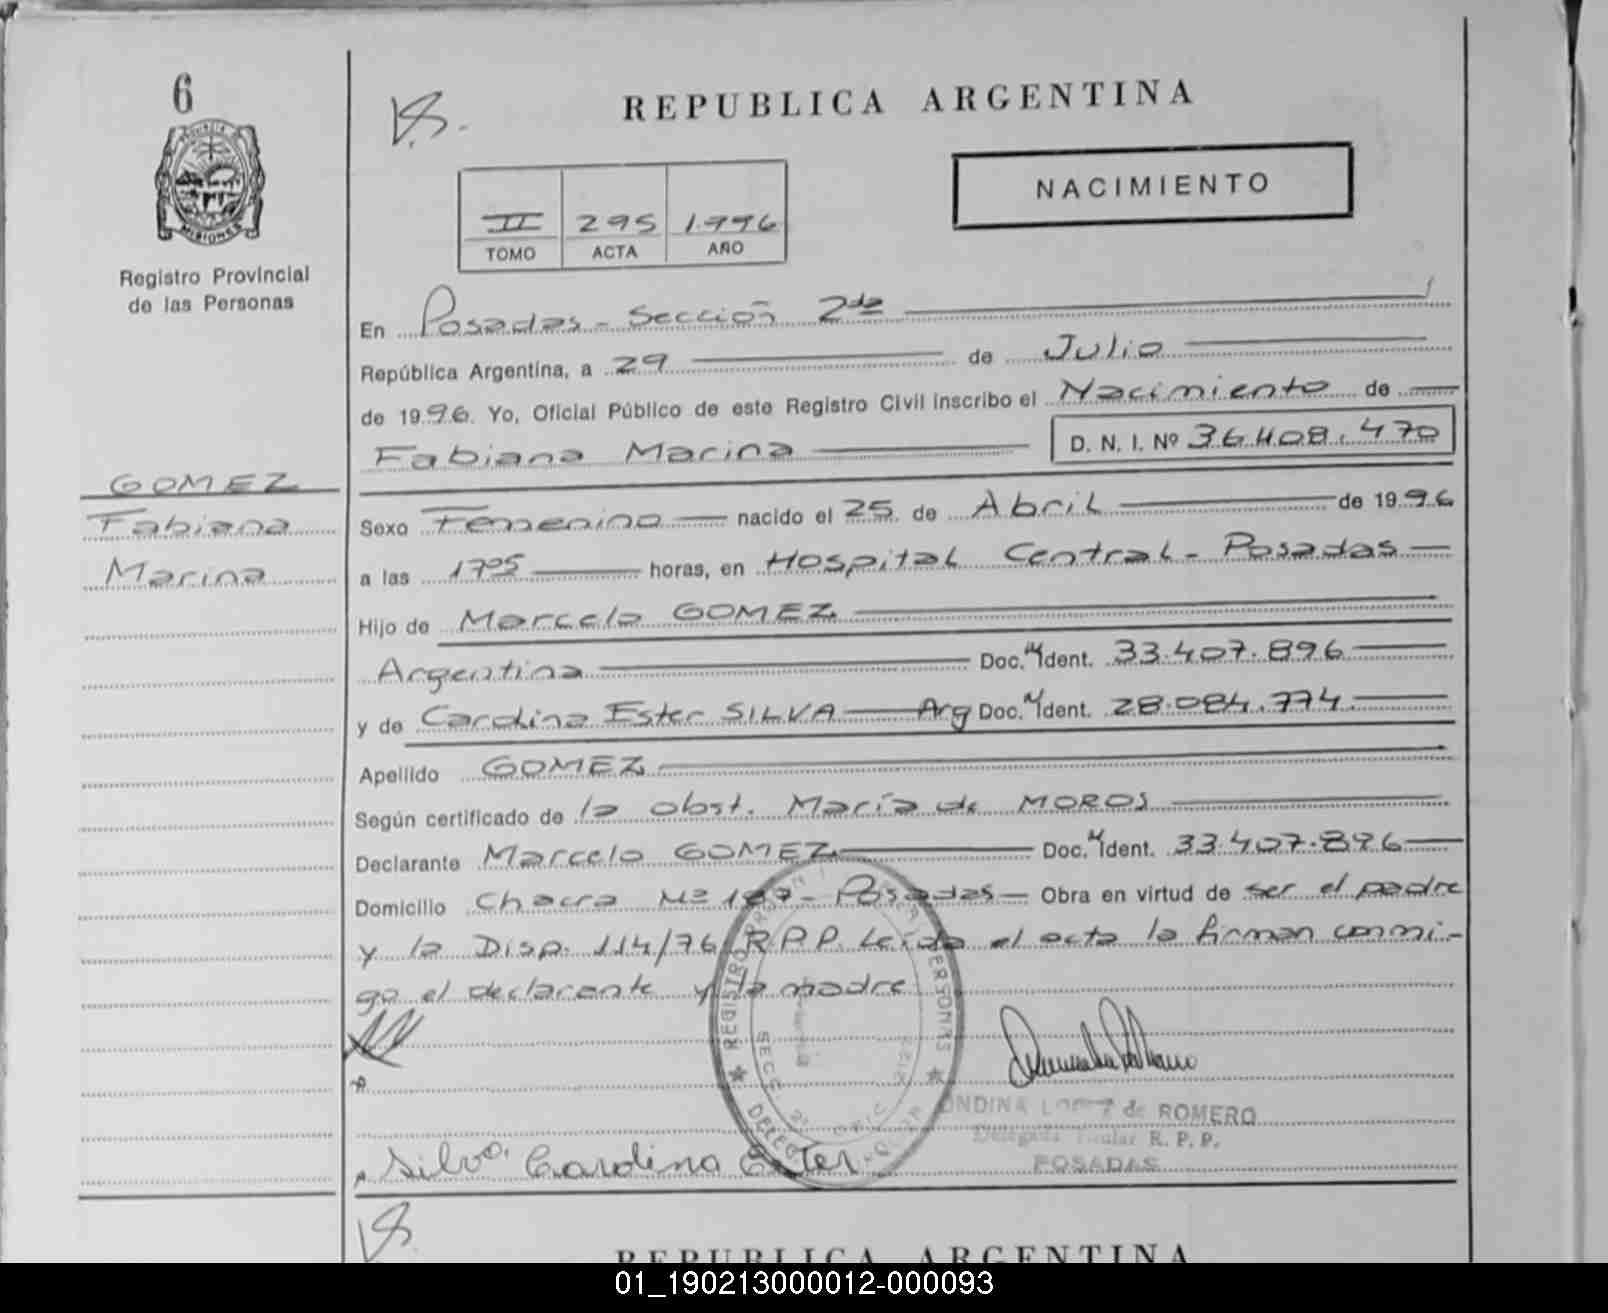 6
REPUBLICA ARGENTINA
PROVINCIA DE
MISIONES
Registro Provincial
de las Personas
NACIMIENTO
II 295 1.996
TOMO ACTA AÑO
En Posadas - Sección 2da
República Argentina, a 29 de Julio
de 1996. Yo, Oficial Público de este Registro Civil inscribo el Nacimiento de
Fabiana Marina D. N. I. Nº 36.408.470
GOMEZ
Fabiana
Marina
Sexo Femenino nacido el 25 de Abril de 1996
a las 17⁰⁵ horas, en Hospital Central - Posadas
Hijo de Marcelo GOMEZ
Argentina Doc. Ident. 33.407.896
y de Carolina Ester SILVA Arg Doc. Ident. 28.084.774
Apellido GOMEZ
Según certificado de la obst. María de MOROS
Declarante Marcelo GOMEZ Doc. Ident. 33.407.896
Domicilio Chacra Nº Posadas Obra en virtud de ser el padre
y la Disp. 114/76 R.P.P. Leída el acta la firman conmi-
go el declarante y la madre
ONDINA LOPEZ de ROMERO
Delegada Titular R. P. P.
POSADAS
Silva Carolina Ester
REPUBLICA ARGENTINA
01_190213000012-000093